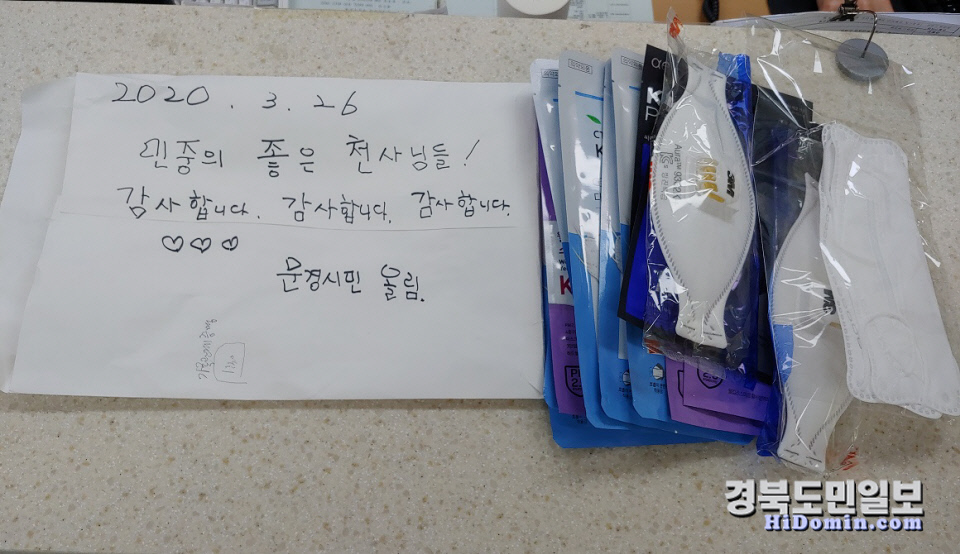 2020. 3. 26
민중의 좋은 천사님들!
감사합니다. 감사합니다. 감사합니다.
♡♡♡
문경시민 올림.
3M
Aura
경북도민일보
HiDomin.com